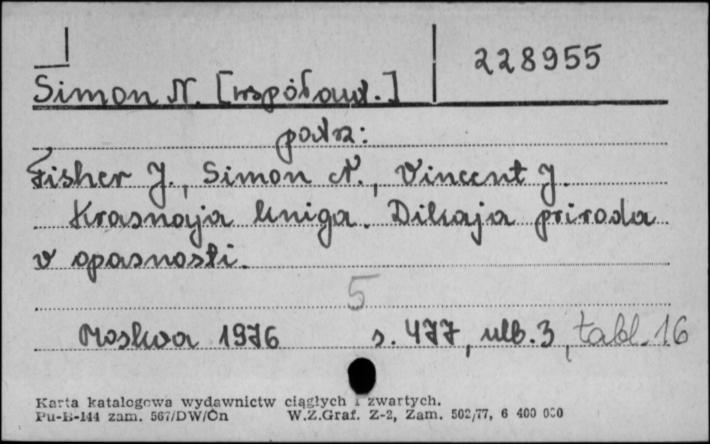 228955
Simon N. [współaut.]
patrz:
Fisher J., Simon N., Vincent J.
Krasnaja kniga. Dikaja priroda
v opasnosti.
5
Moskva 1976 s. 477, ulb. 3, tabl. 16
Karta katalogowa wydawnictw ciągłych i zwartych.
Pu-B-144 zam. 567/DW/On W.Z.Graf. Z-2, Zam. 502/77, 6 400 000